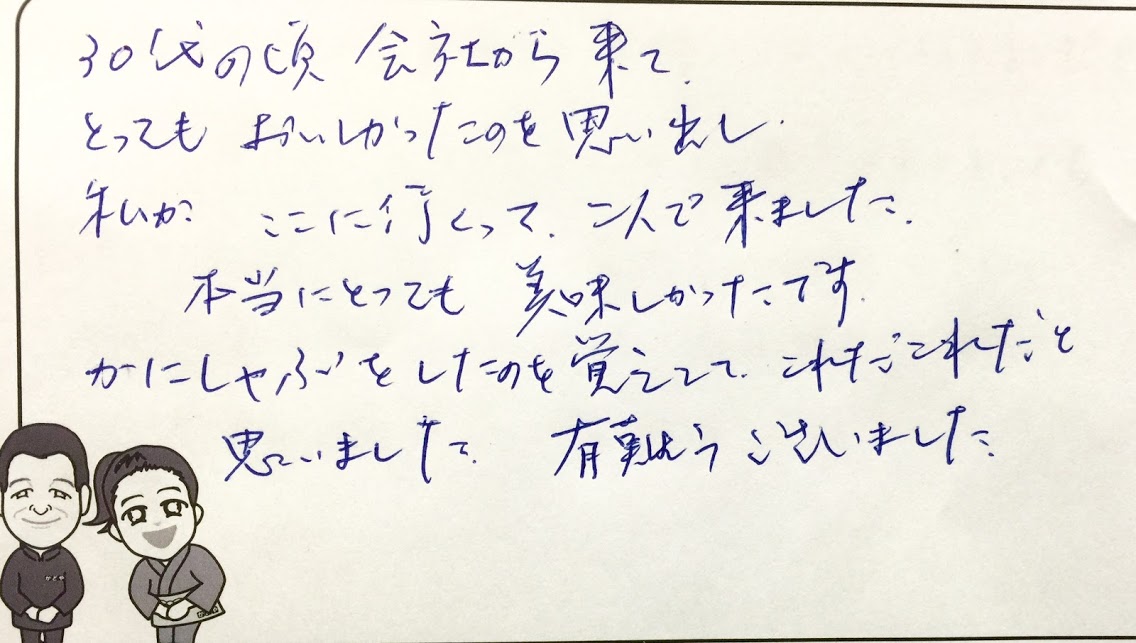 30代の頃 会社から来て、
とっても おいしかったのを思い出し、
私が ここに行くって、二人で来ました。
本当にとっても 美味しかったです。
かにしゃぶをしたのを覚えてて、これだこれだと
思いました。 有難うございました
かとや